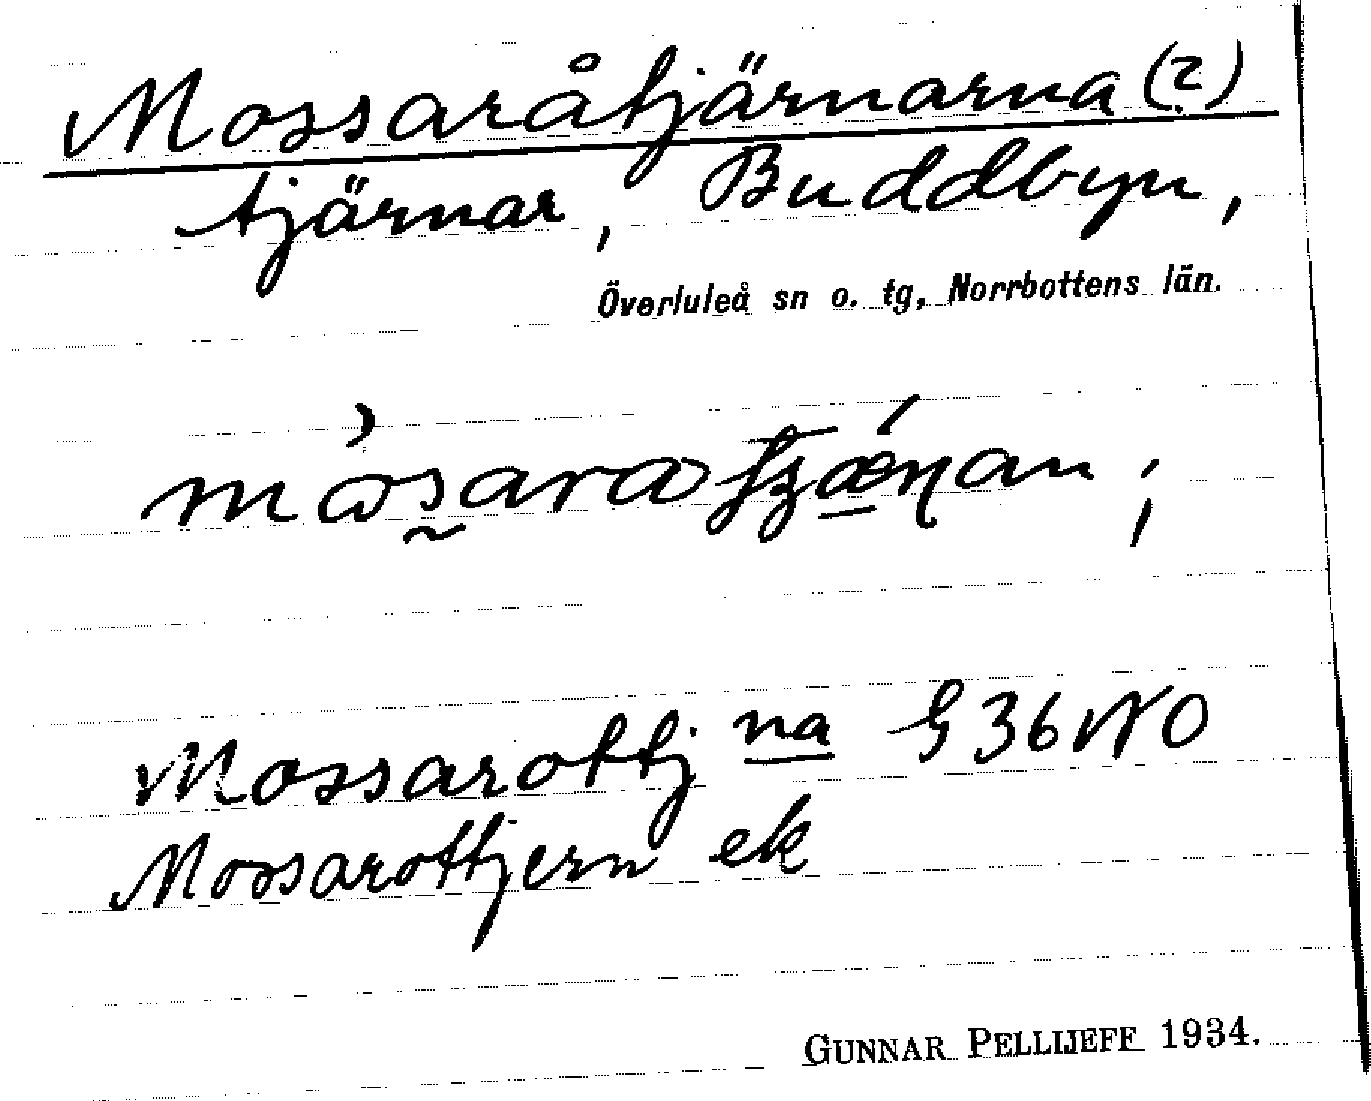 Mossaråtjärnarna (2)
tjärnar, Buddbyn,
Överluleå sn o. tg, Norrbottens län.
Mossarottj na G 36 NO
Mossarottjern ek
GUNNAR PELLIJEFF 1934.